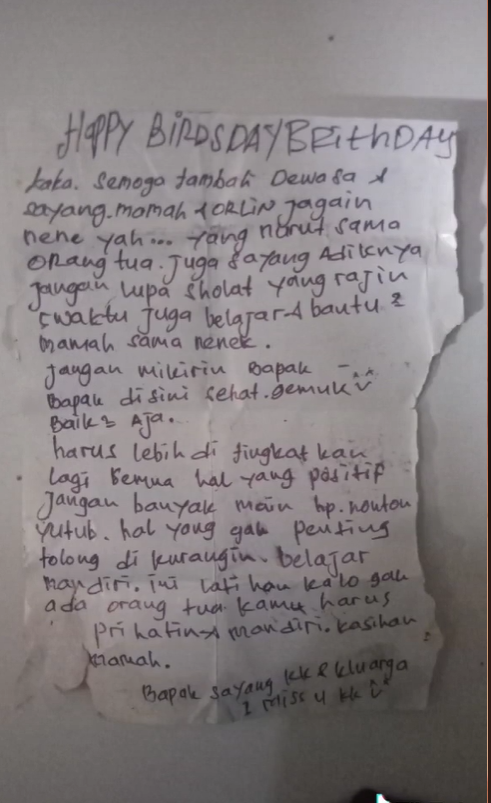 HAPPY BIRDSDAY BRithDAY
kaka. Semoga tambah Dewasa &
sayang. mamah & ORLIN jagain
nene yah... yang nurut sama
orang tua. juga sayang Adiknya
jangan lupa sholat yang rajin
5 waktu juga belajar & bantu 2
mamah sama nenek.
jangan mikirin Bapak
Bapak disini sehat. gemuk
Baik2 Aja.
harus lebih di tingkat kan
lagi semua hal yang positif
jangan banyak main hp. nonton
yutub. hal yang gak penting
tolong di kurangin. belajar
mandiri. ini latihan kalo gak
ada orang tua kamu harus
prihatin & mandiri. kasihan
mamah.
Bapak sayang kk & kluarga
I miss u kk